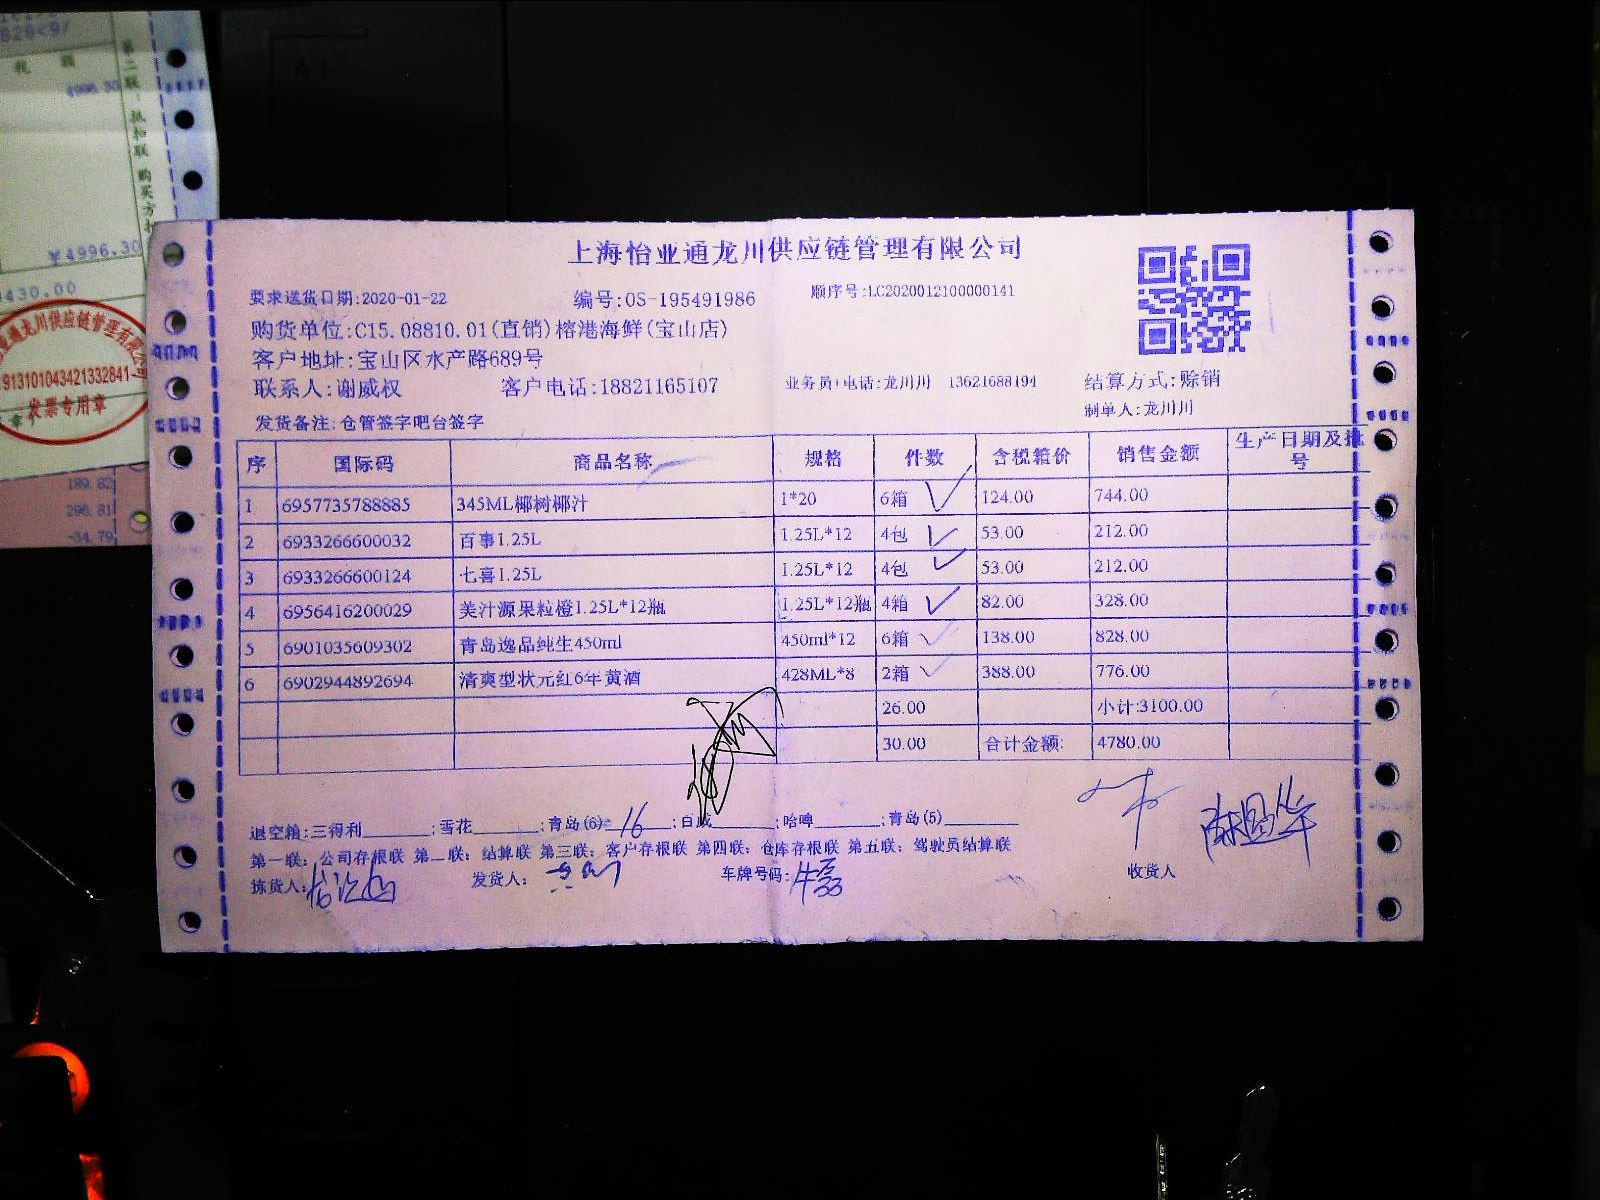 828<9/
税 额
4996.30
第二联：抵扣联 购买方扣
￥4996.30
9430.00
通龙川供应链管理有限公司
913101043421332841
发票专用章
189.82
296.81
-34.79
上海怡业通龙川供应链管理有限公司
要求送货日期:2020-01-22 编号:OS-195491986 顺序号:LC2020012100000141
购货单位:C15.08810.01(直销)榕港海鲜(宝山店)
客户地址:宝山区水产路689号
联系人:谢威权 客户电话:18821165107 业务员+电话:龙川川 13621688194 结算方式:赊销
制单人:龙川川
发货备注:仓管签字吧台签字
序 国际码 商品名称 规格 件数 含税箱价 销售金额 生产日期及批号
1 6957735788885 345ML椰树椰汁 1*20 6箱 124.00 744.00
2 6933266600032 百事1.25L 1.25L*12 4包 53.00 212.00
3 6933266600124 七喜1.25L 1.25L*12 4包 53.00 212.00
4 6956416200029 美汁源果粒橙1.25L*12瓶 1.25L*12瓶 4箱 82.00 328.00
5 6901035609302 青岛逸品纯生450ml 450ml*12 6箱 138.00 828.00
6 6902944892694 清爽型状元红6年黄酒 428ML*8 2箱 388.00 776.00
26.00 小计:3100.00
30.00 合计金额: 4780.00
退空箱:三得利______;雪花______;青岛(6) 16 ;百威______;哈啤______;青岛(5)______
第一联：公司存根联 第二联：结算联 第三联：客户存根联 第四联：仓库存根联 第五联：驾驶员结算联
拣货人: 发货人: 车牌号码:牛磊 收货人